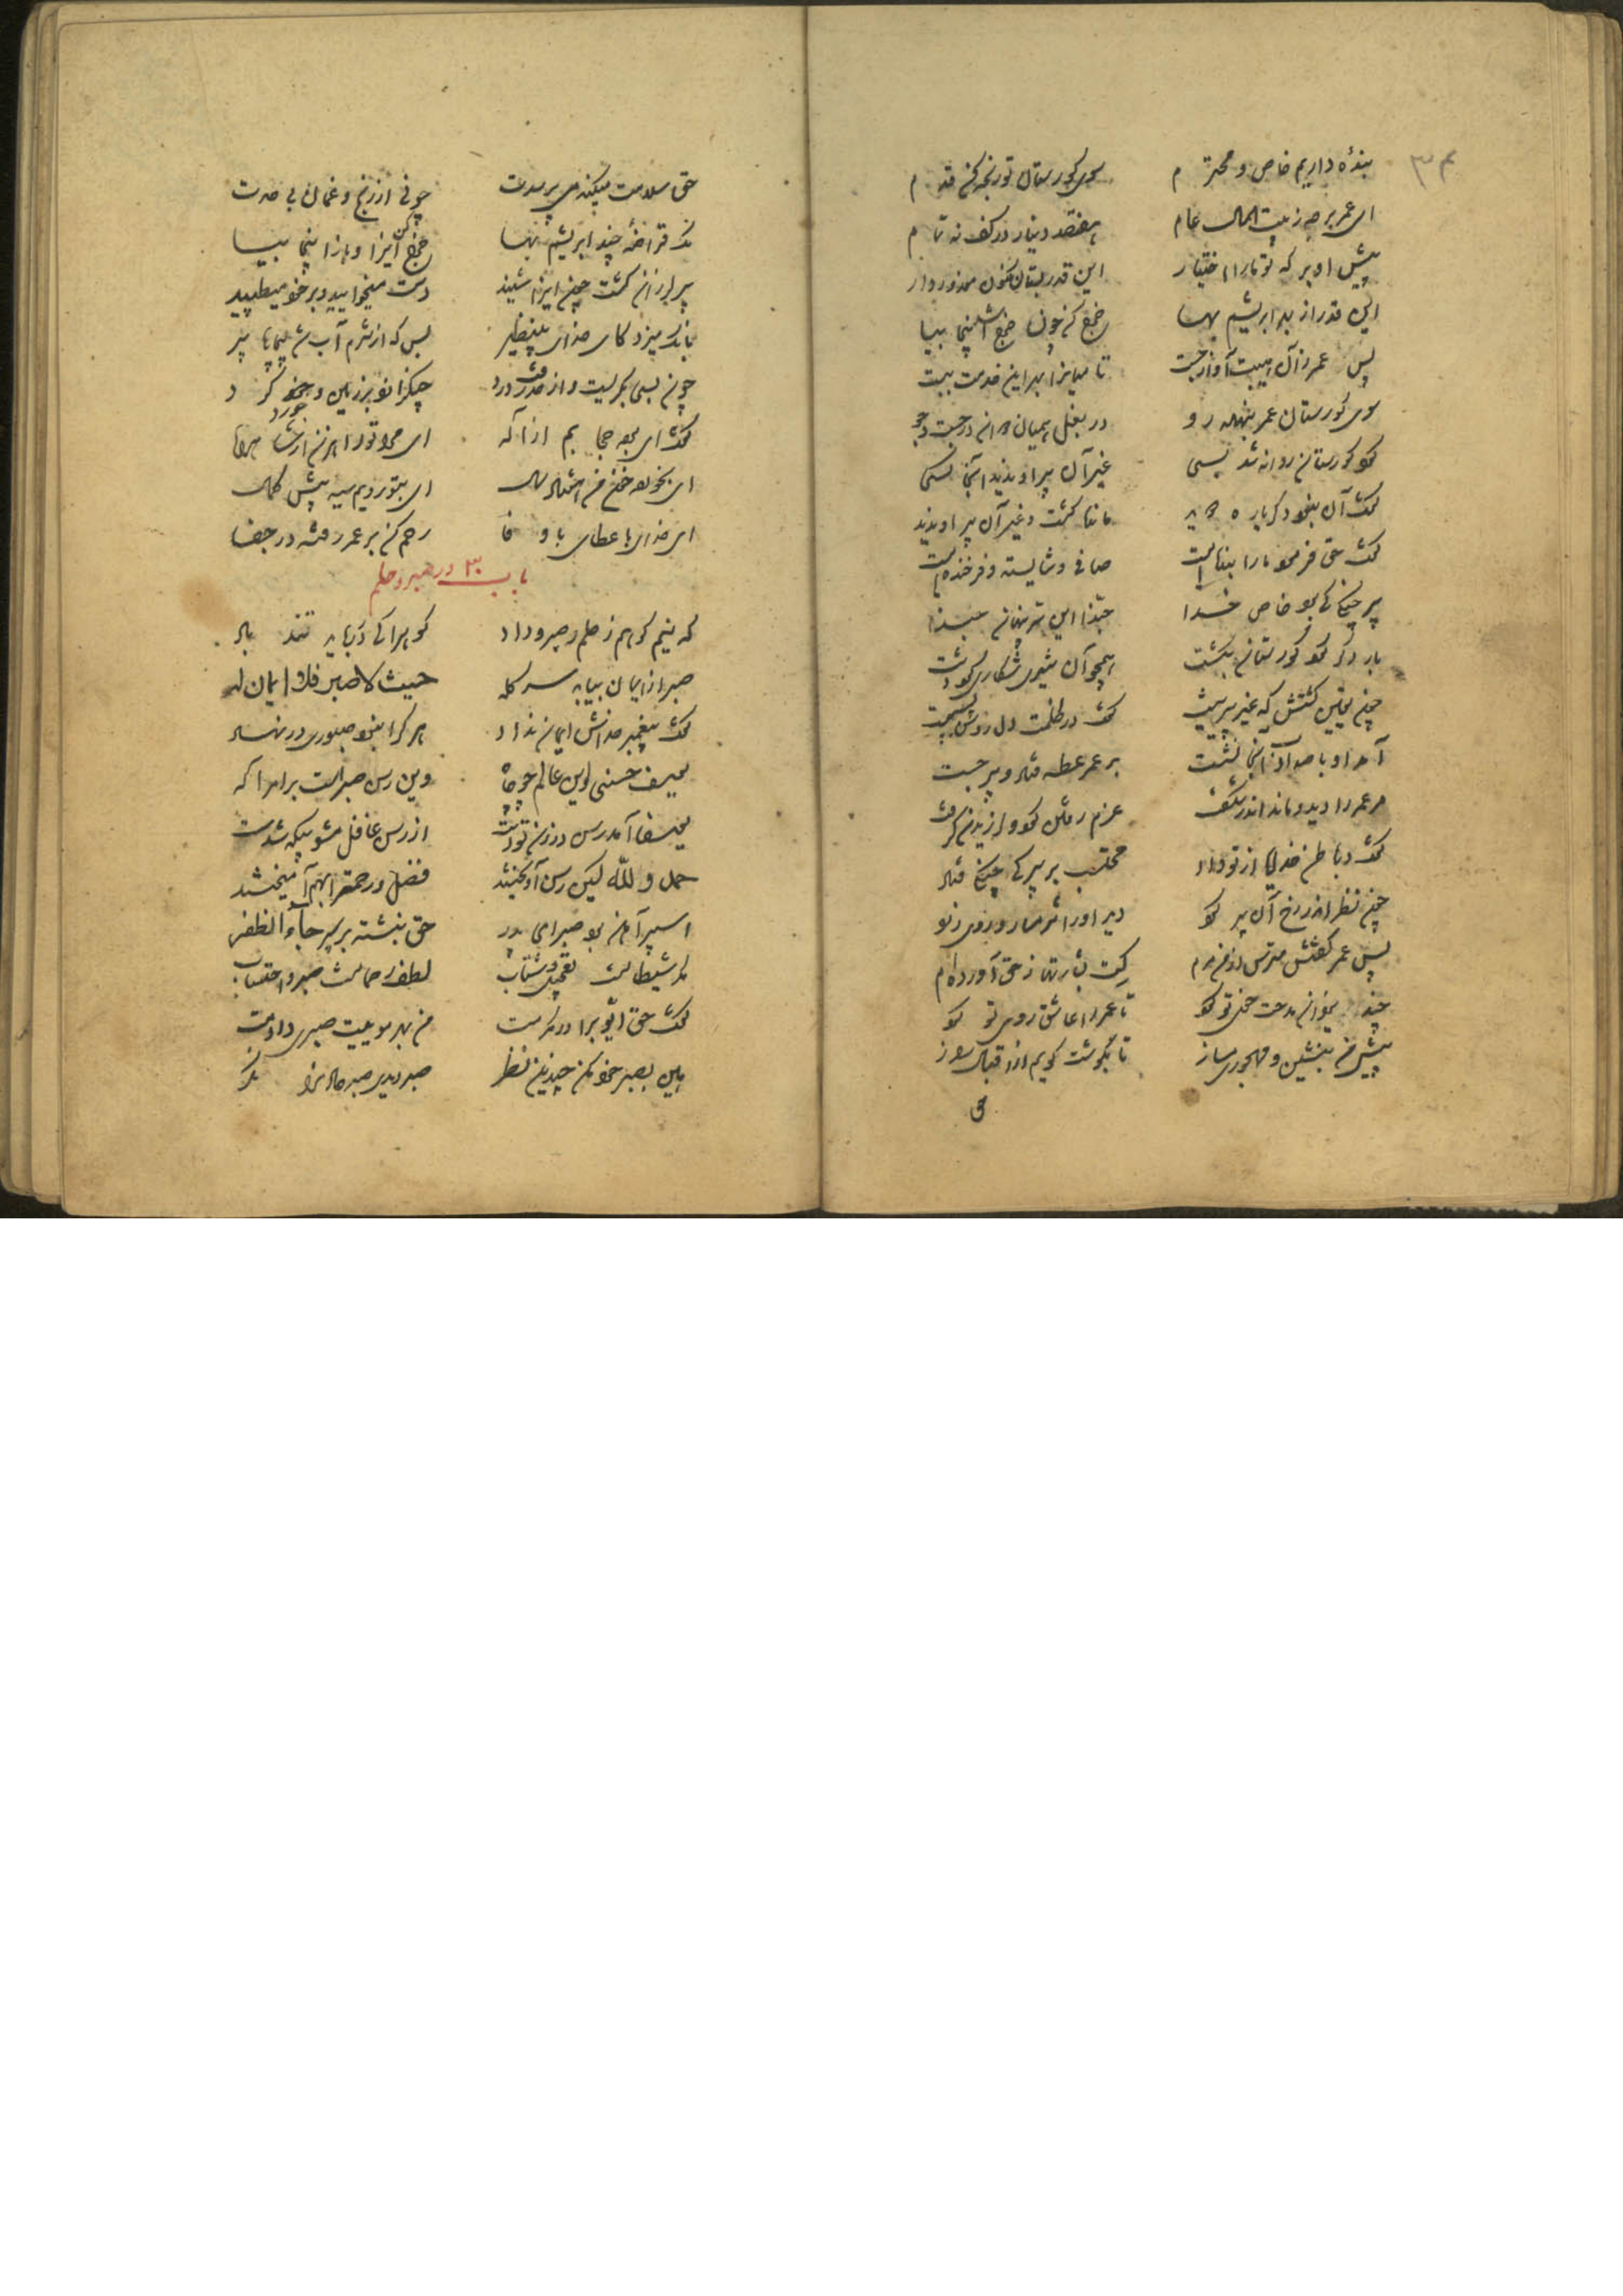 ۳۴
بندهٔ داریم خاص و محترم سوی گورستان تو رنجه کن قدم
ای عمر بر جه ز بیت المال عام هفتصد دینار در کف نه تمام
پیش او بر که تو ما را اختیار این قدر بستان کنون معذور دار
این قدر از بهر ابریشم بها خرج کن چون خرج شد اینجا بیا
پس عمر زآن هیبت آواز جست تا میانرا بهر این خدمت ببست
سوی گورستان عمر بنهاد رو در بغل همیان دوان در جست و جو
گرد گورستان روانه شد بسی غیر آن پیر او ندید آنجا کسی
گفت آن نبود دگر باره دوید مانده گشت و غیر آن پیر او ندید
گفت حق فرمود ما را بنده‌ایست صافی و شایسته و فرخنده‌ایست
پیر چنگی کی بود خاص خدا حبذا ای سر پنهان حبذا
بار دیگر گرد گورستان بگشت همچو آن شیر شکاری گرد دشت
چون یقین گشتش که غیر پیر نیست گفت در ظلمت دل روشن بسیست
آمد او با صد ادب آنجا نشست بر عمر عطسه فتاد و پیر جست
مر عمر را دید و ماند اندر شگفت عزم رفتن کرد و لرزیدن گرفت
گفت در باطن خدایا از تو داد محتسب بر پیرکی چنگی فتاد
چون نظر اندر رخ آن پیر کرد دید او را شرمسار و روی زرد
پس عمر گفتش مترس از من مرم کت بشارتها ز حق آورده‌ام
چند یزدان مدحت خوی تو کرد تا عمر را عاشق روی تو کرد
پیش من بنشین و مهجوری مساز تا بگوشت گویم از اقبال راز
حق
حق سلامت میکند می پرسدت چونی از رنج و غمان بی حدت
نک قراضهٔ چند ابریشم بها خرج کن اینرا و باز اینجا بیا
پیر لرزان گشت چون اینرا شنید دست میخایید و بر خود میطپید
بانگ میزد کای خدای بی‌نظیر بس که از شرم آب شد بیچاره پیر
چون بسی بگریست و از حد رفت درد چنگ را زد بر زمین و خرد کرد
گفت ای بوده حجابم از اله ای مرا تو راهزن از شاهراه
ای بخورده خون من هفتاد سال ای ز تو رویم سیه پیش کمال
ای خدای با عطای با وفا رحم کن بر عمر رفته در جفا
باب ۳۰ در صبر و حلم
که نیم کوهم ز حلم و صبر و داد کوه را کی در رباید تند باد
صبر از ایمان بیابد سر کله حیث لا صبر فلا ایمان له
گفت پیغمبر خداش ایمان نداد هر کرا نبود صبوری در نهاد
یوسف حسنی و این عالم چو چاه وین رسن صبر است بر امر اله
یوسفا آمد رسن در زن تو دست از رسن غافل مشو بیگه شدست
حمد و لله کین رسن آویختند فضل و رحمت را بهم آمیختند
حق نبشته بر سپر جاء الظفر
مکر شیطانست تعجیل و شتاب لطف رحمانست صبر و احتساب
گفت حق ایوب را در مکرمت من بهر موییت صبری دادمت
هین بصبر خود مکن چندین نظر صبر دیدی صبر دادن را نگر